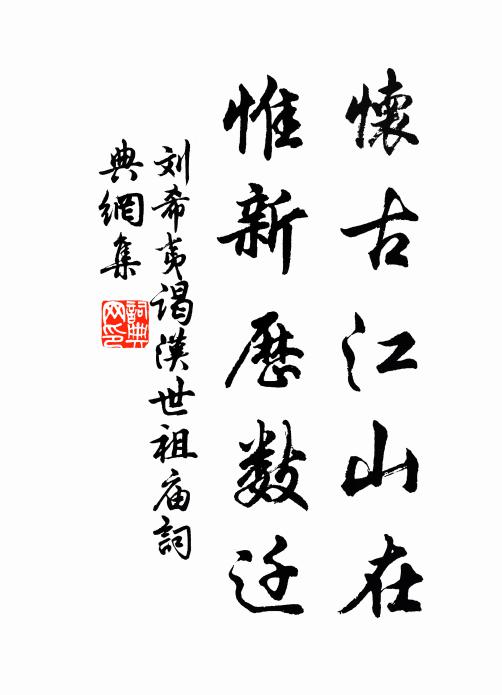 懷古江山在
惟新歷數迁
刘希夷谒漢世祖庙詞
典網集
詞典网印